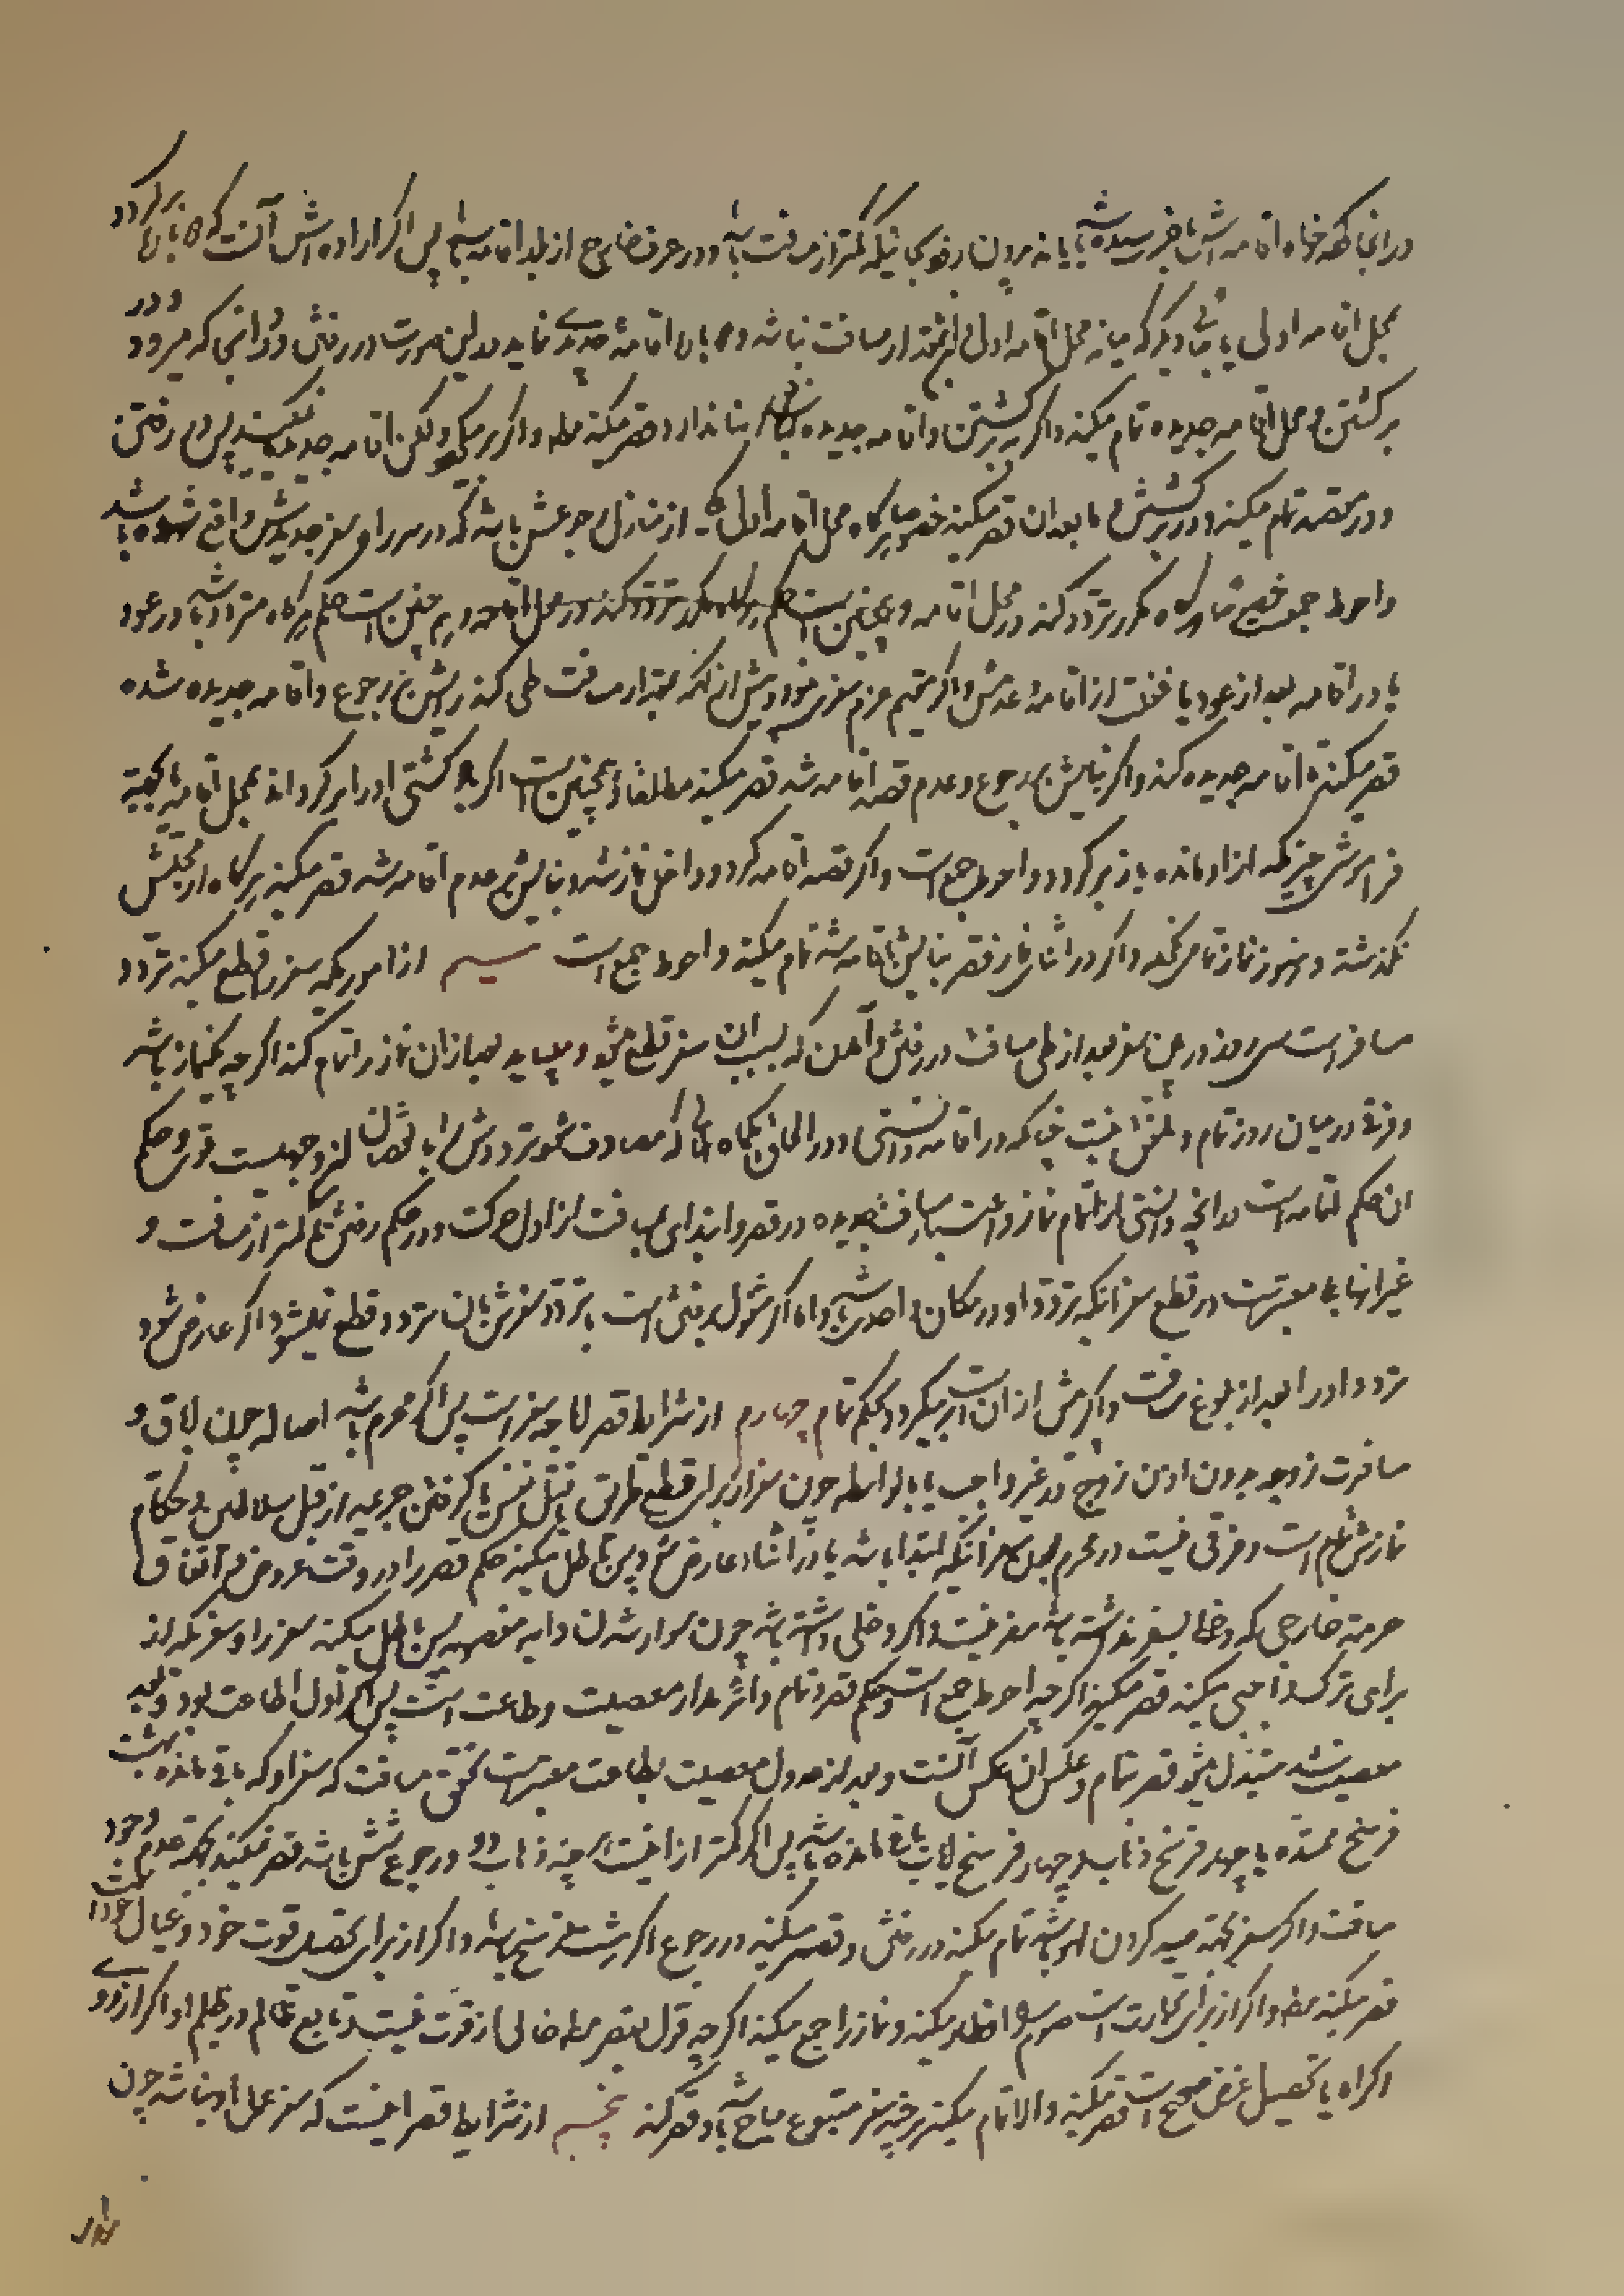 در انجا که خواه اقامه اش باخر رسیده باشد یا نه بیرون رفتن بجائیکه کمتر از مسافت باشد و در عرف خارج از بلد اقامه باشد پس اگر اراده اش آنست که باز برگردد
بمحل اقامه اولی یا جای دیگر که میانه محل اقامه اولی بقدر مسافت نباشد و در آن اقامه جدیدی نماید در این صورت در رفتن و در انجا که میرود و در
برگشتن و محل اقامه جدیده تمام میکند و اگر بر برگشتن و اقامه جدیده بنا ندارد قصر میکند مطلقا و اگر بر میگردد لکن اقامه جدیده نمیکند پس در رفتن
و در مقصد تمام میکند و در برگشتن و ما بعد ان قصر میکند خصوصا هرگاه محل اقامه اول از منازل رجوعش باشد که در سر راه سفر جدیدش واقع شده باشد
و احوط جمع خصوصا هرگاه مکرر تردد کند در محل اقامه و همچنین است حکم هرگاه متردد باشد در عود
یا در اقامه بعد از عود یا غفلت از اقامه و عدمش و اگر مقیم عزم سفری نمود و پیش از انکه بقدر مسافت طی کند رایش بر رجوع و اقامه جدیده شده
قصر میکند تا اقامه جدیده کند و اگر بنایش بر رجوع و عدم قصد اقامه شد قصر میکند مطلقا و همچنین است اگر باد کشتی او را برگرداند بمحل اقامه یا بجهة
فراموشی چیزیکه از او مانده باز برگردد و احوط جمع است و اگر قصد اقامه کرد و داخل نماز شد و بنایش بر عدم اقامه شد قصر میکند هرگاه از محلش
نگذشته و هنوز نماز تمامی نکرده و اگر در اثنای نماز قصر بنایش باقامه شد تمام میکند و احوط جمع است سیم از اموریکه سفر را قطع میکند تردد
مسافر است سی روز در بین سفر بعد از طی مسافت در رفتن و آمدن که بسبب ان سفر قطع میشود و میباید بعد از ان نماز را تمام کند اگر چه یکنماز باشد
و فرقی در میان روز تمام و ملفق نیست چنانکه در اقامه دانستی و در الحاق یکماه هلالی که مصادف شود تردد در اول ان با نقصان از وجهیست قوی و حکم
ان حکم اقامه است در انچه دانستی از اتمام نماز و اعتبار مسافت جدیده در قصر و ابتدای مسافت از اول حرکت و در حکم رفتن بکمتر از مسافت و
غیر انها بلی معتبر است در قطع سفر انکه تردد او در مکان واحد باشد و اما اگر مشغول برفتن است با تردد سفرش بان تردد قطع نمیشود و اگر عارض شود
تردد او را بعد از بلوغ مسافت و اگر پیش از ان است بر میگردد بحکم تمام چهارم از شرایط قصر اباحه سفر است پس اگر محرم باشد اصالة چون اباق و
مسافرت زوجه بدون اذن زوج در غیر واجب یا بالواسطه چون سفر از برای قطع طریق یا قتل نفس یا گرفتن جریمه از قبل سلاطین و حکام
نمازش تمام است و فرقی نیست در محرم بودن سفر انکه ابتداءا باشد یا در اثناء عارض شود پس باطل میکند حکم قصر را در وقت عروض و اتفاق
حرمة خارجی که دخلی بسفر نداشته باشد مضر نیست و اگر دخلی داشته باشد چون سوار شدن دابه مغصوبه پس باطل میکند سفر را و سفریکه از
برای ترک واجبی میکند قصر میکند اگر چه احوط جمع است و حکم قصر و تمام دائر مدار معصیت و طاعت است پس اگر اول اطاعت بود و بعد
معصیت شد متبدل میشود قصر بتمام و عکس ان بعکس آنست و بعد از عدول معصیت بطاعت معتبر است تحقق مسافت که سفر او که باقی مانده هشت
فرسخ ممتده یا چهار فرسخ ذهاب و چهار فرسخ ایاب باقی مانده باشد پس اگر کمتر از انست چه ذهاب دو و رجوع شش باشد قصر نمیکند بجهة عدم وجود
مسافت و اگر سفر بجهة صید کردن لهو باشد تمام میکند در رفتن و قصر میکند در رجوع اگر هشت فرسخ باشد و اگر از برای تحصیل قوت خود و عیال خود است
قصر میکند مطلقا و اگر از برای تجارت است صوم را افطار میکند و نماز را جمع میکند اگر چه قول بقصر مطلقا خالی از قوت نیست و تابع ظالم در ظلم او اگر از روی
اکراه یا تحصیل غرض صحیح است قصر میکند و الا تمام میکند هر چند سفر متبوع مباح باشد و قصر کند پنجم از شرایط قصر انست که سفر عمل او نباشد چون